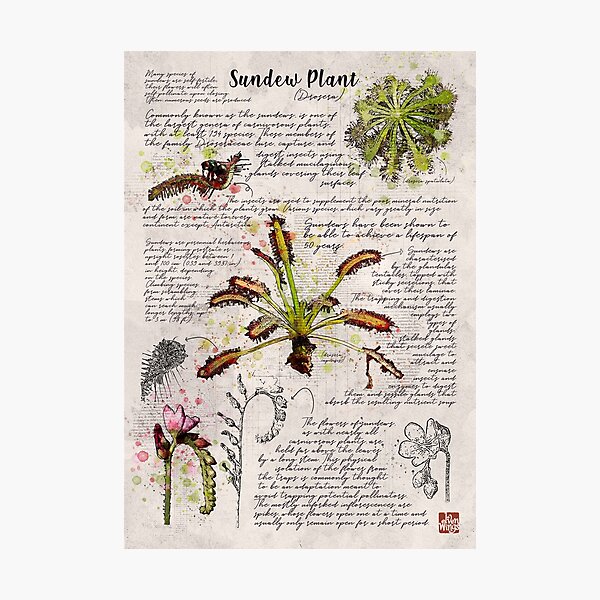 Sundew Plant
(Drosera)
Many species of
sundews are self-fertile;
their flowers will often
self-pollinate upon closing.
Often, numerous seeds are produced.
Commonly known as the sundews, is one of
the largest genera of carnivorous plants,
with at least 194 species. These members of
the family Droseraceae lure, capture, and
digest insects using
stalked mucilaginous
glands covering their leaf
surfaces.
(drosera spatulata)
The insects are used to supplement the poor mineral nutrition
of the soil in which the plants grow. Various species, which vary greatly in size
and form, are native to every
continent except Antarctica
Sundews have been shown to
be able to achieve a lifespan of
50 years
Sundews are perennial herbaceous
plants, forming prostrate or
upright rosettes between
and 100 cm (0.39 and 39.37 in)
in height, depending
on the species.
Climbing species
form scrambling
stems which
can reach much
longer lengths, up
to 3 m (9.8 ft)
Sundews are
characterised
by the glandular
tentacles, topped with
sticky secretions, that
cover their laminae.
The trapping and digestion
mechanism usually
employs two
types of
glands:
stalked glands
that secrete sweet
mucilage to
attract and
ensnare
insects and
enzymes to digest
them, and sessile glands that
absorb the resulting nutrient soup
The flowers of sundews,
as with nearly all
carnivorous plants, are
held far above the leaves
by a long stem. This physical
isolation of the flower from
the traps is commonly thought
to be an adaptation meant to
avoid trapping potential pollinators.
The mostly unforked inflorescences are
spikes, whose flowers open one at a time and
usually only remain open for a short period.
Wings